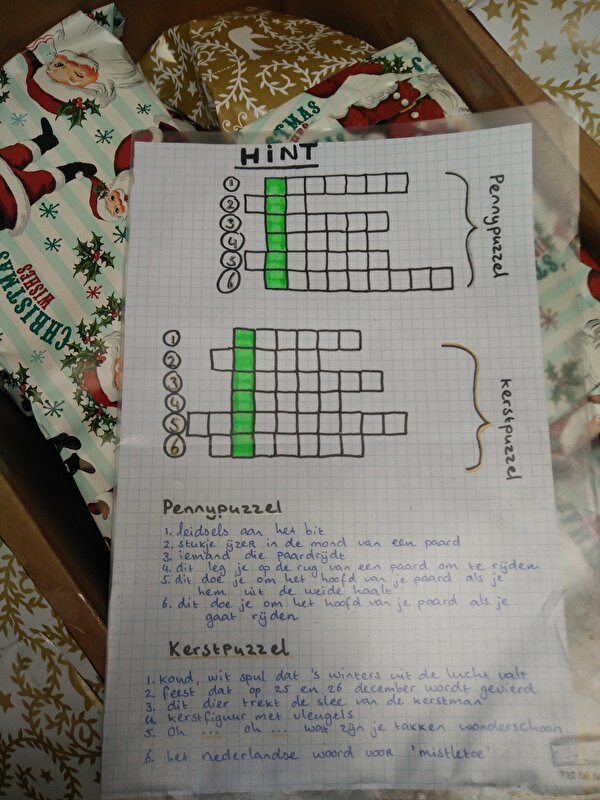 HINT
1
2
3
4
5
6
Pennypuzzel
1
2
3
4
5
6
kerstpuzzel
Pennypuzzel
1. leidsels aan het bit
2. stukje ijzer in de mond van een paard
3. iemand die paardrijdt
4. dit leg je op de rug van een paard om te rijden
5. dit doe je om het hoofd van je paard als je
hem uit de weide haalt
6. dit doe je om het hoofd van je paard als je
gaat rijden
Kerstpuzzel
1. koud, wit spul dat 's winters uit de lucht valt
2. feest dat op 25 en 26 december wordt gevierd
3. dit dier trekt de slee van de kerstman
4. kerstfiguur met vleugels
5. Oh ... oh ... wat zijn je takken wonderschoon
6. het nederlandse woord voor 'mistletoe'
CHRISTMAS
WISHES